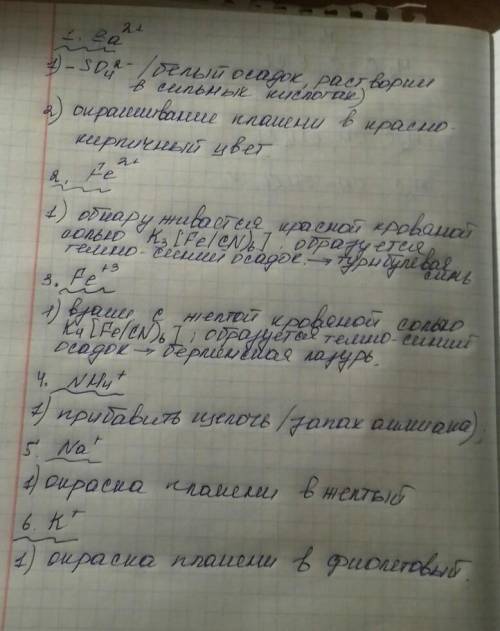 1. Ca²⁺
1) – SO₄²⁻ /белый осадок, растворим
в сильных кислотах)
2) окрашивание пламени в красно-
кирпичный цвет
2. Fe²⁺
1) обнаруживается красной кровяной
солью K₃[Fe(CN)₆], образуется
темно-синий осадок. → турнбулевая
синь
3. Fe⁺³
1) взаим. с желтой кровяной солью
K₄[Fe(CN)₆], образуется темно-синий
осадок → берлинская лазурь.
4. NH₄⁺
1) прибавить щелочь /запах аммиака),
5. Na⁺
1) окраска пламени в желтый
6. K⁺
1) окраска пламени в фиолетовый.